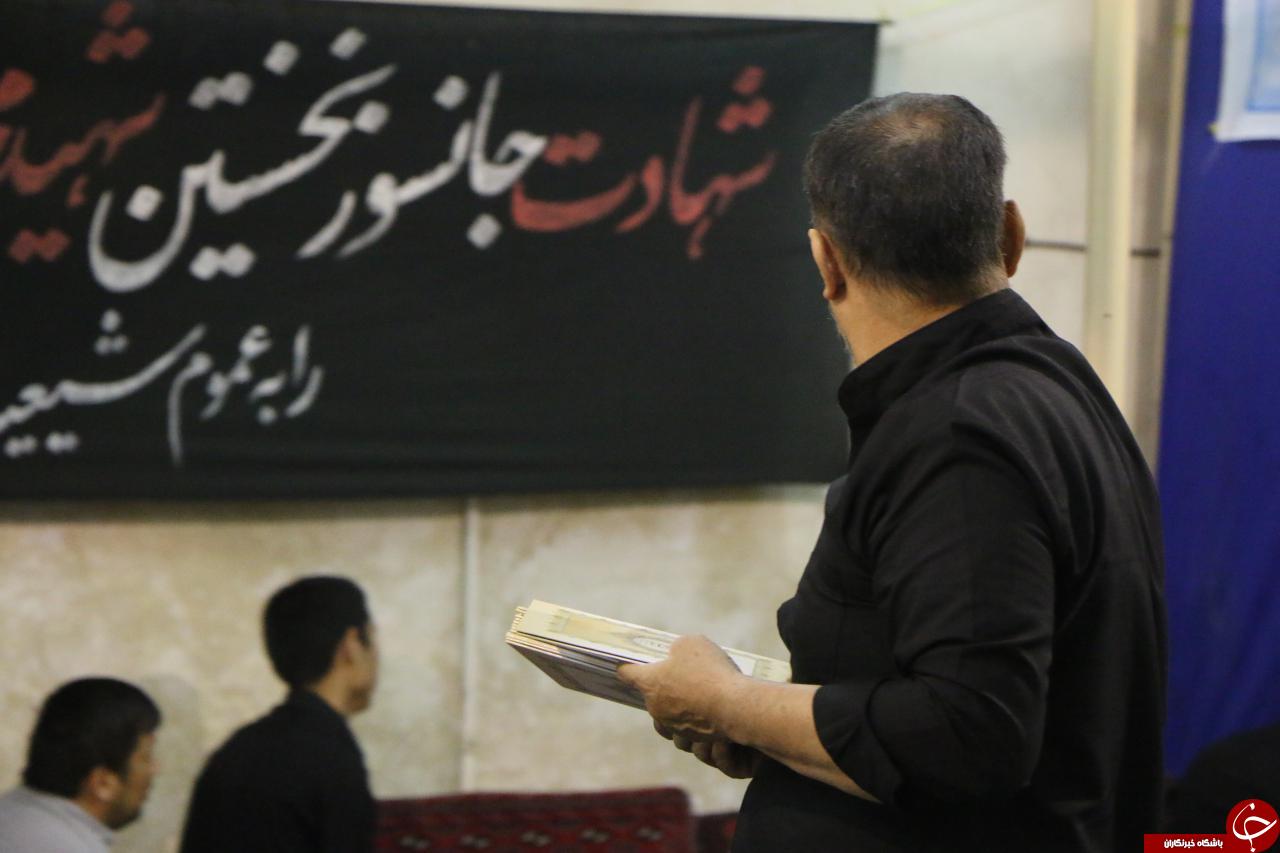 شهادت جانسوز نخستین شهید
را به عموم
باشگاه خبرنگاران